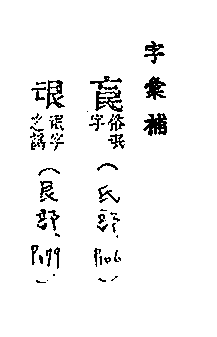 字彙補
俗氓字
(氏部 P.106)
氓字之譌
(艮部 P.179)